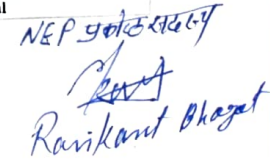 NEP प्रकोष्ठ सदस्य
Ravikant Bhagat